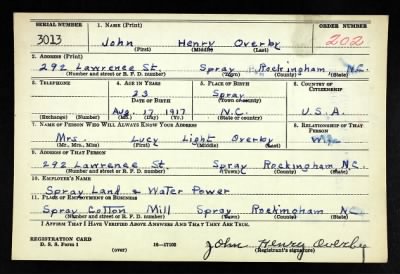 SERIAL NUMBER
1. NAME (Print)
ORDER NUMBER
3013
John Henry Overby
202
(First) (Middle) (Last)
2. ADDRESS (Print)
292 Lawrence St. Spray Rockingham N.C.
(Number and street or R. F. D. number) (Town) (County) (State)
3. TELEPHONE
4. AGE IN YEARS
5. PLACE OF BIRTH
6. COUNTRY OF CITIZENSHIP
23
Spray
DATE OF BIRTH
(Town or county)
Aug. 17, 1917
N.C.
U.S.A.
(Exchange) (Number)
(Mo.) (Day) (Yr.)
(State or country)
7. NAME OF PERSON WHO WILL ALWAYS KNOW YOUR ADDRESS
8. RELATIONSHIP OF THAT PERSON
Mrs. Lucy Light Overby
wife
(Mr., Mrs., Miss) (First) (Middle) (Last)
9. ADDRESS OF THAT PERSON
292 Lawrence St. Spray Rockingham N.C.
(Number and street or R. F. D. number) (Town) (County) (State)
10. EMPLOYER'S NAME
Spray Land & Water Power
11. PLACE OF EMPLOYMENT OR BUSINESS
Spray Cotton Mill Spray Rockingham NC
(Number and street or R. F. D. number) (Town) (County) (State)
I AFFIRM THAT I HAVE VERIFIED ABOVE ANSWERS AND THAT THEY ARE TRUE.
REGISTRATION CARD
D. S. S. Form 1
(over)
16—17105
John Henry Overby
(Registrant's signature)